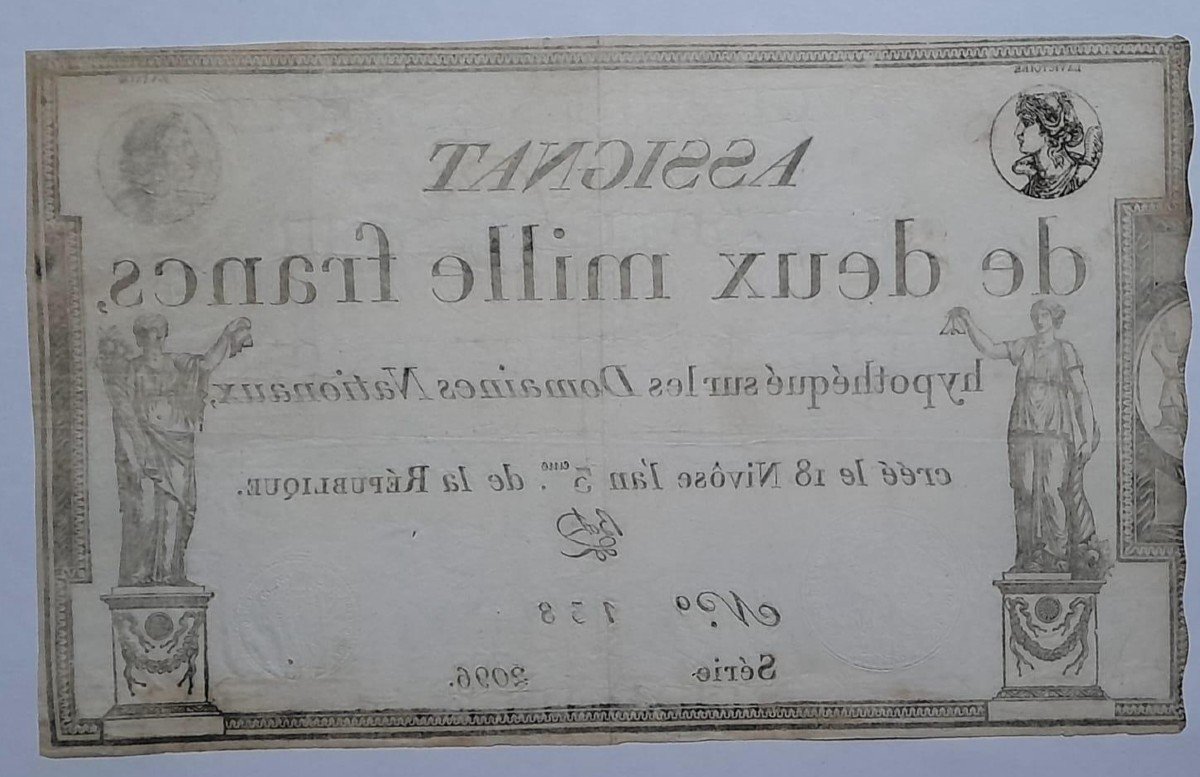 LA VICTOIRE
ASSIGNAT
de deux mille francs,
hypothéqué sur les Domaines Nationaux,
créé le 18 Nivôse l'an 3.eme de la RÉPUBLIQUE.
N.o 138
Série 2096.